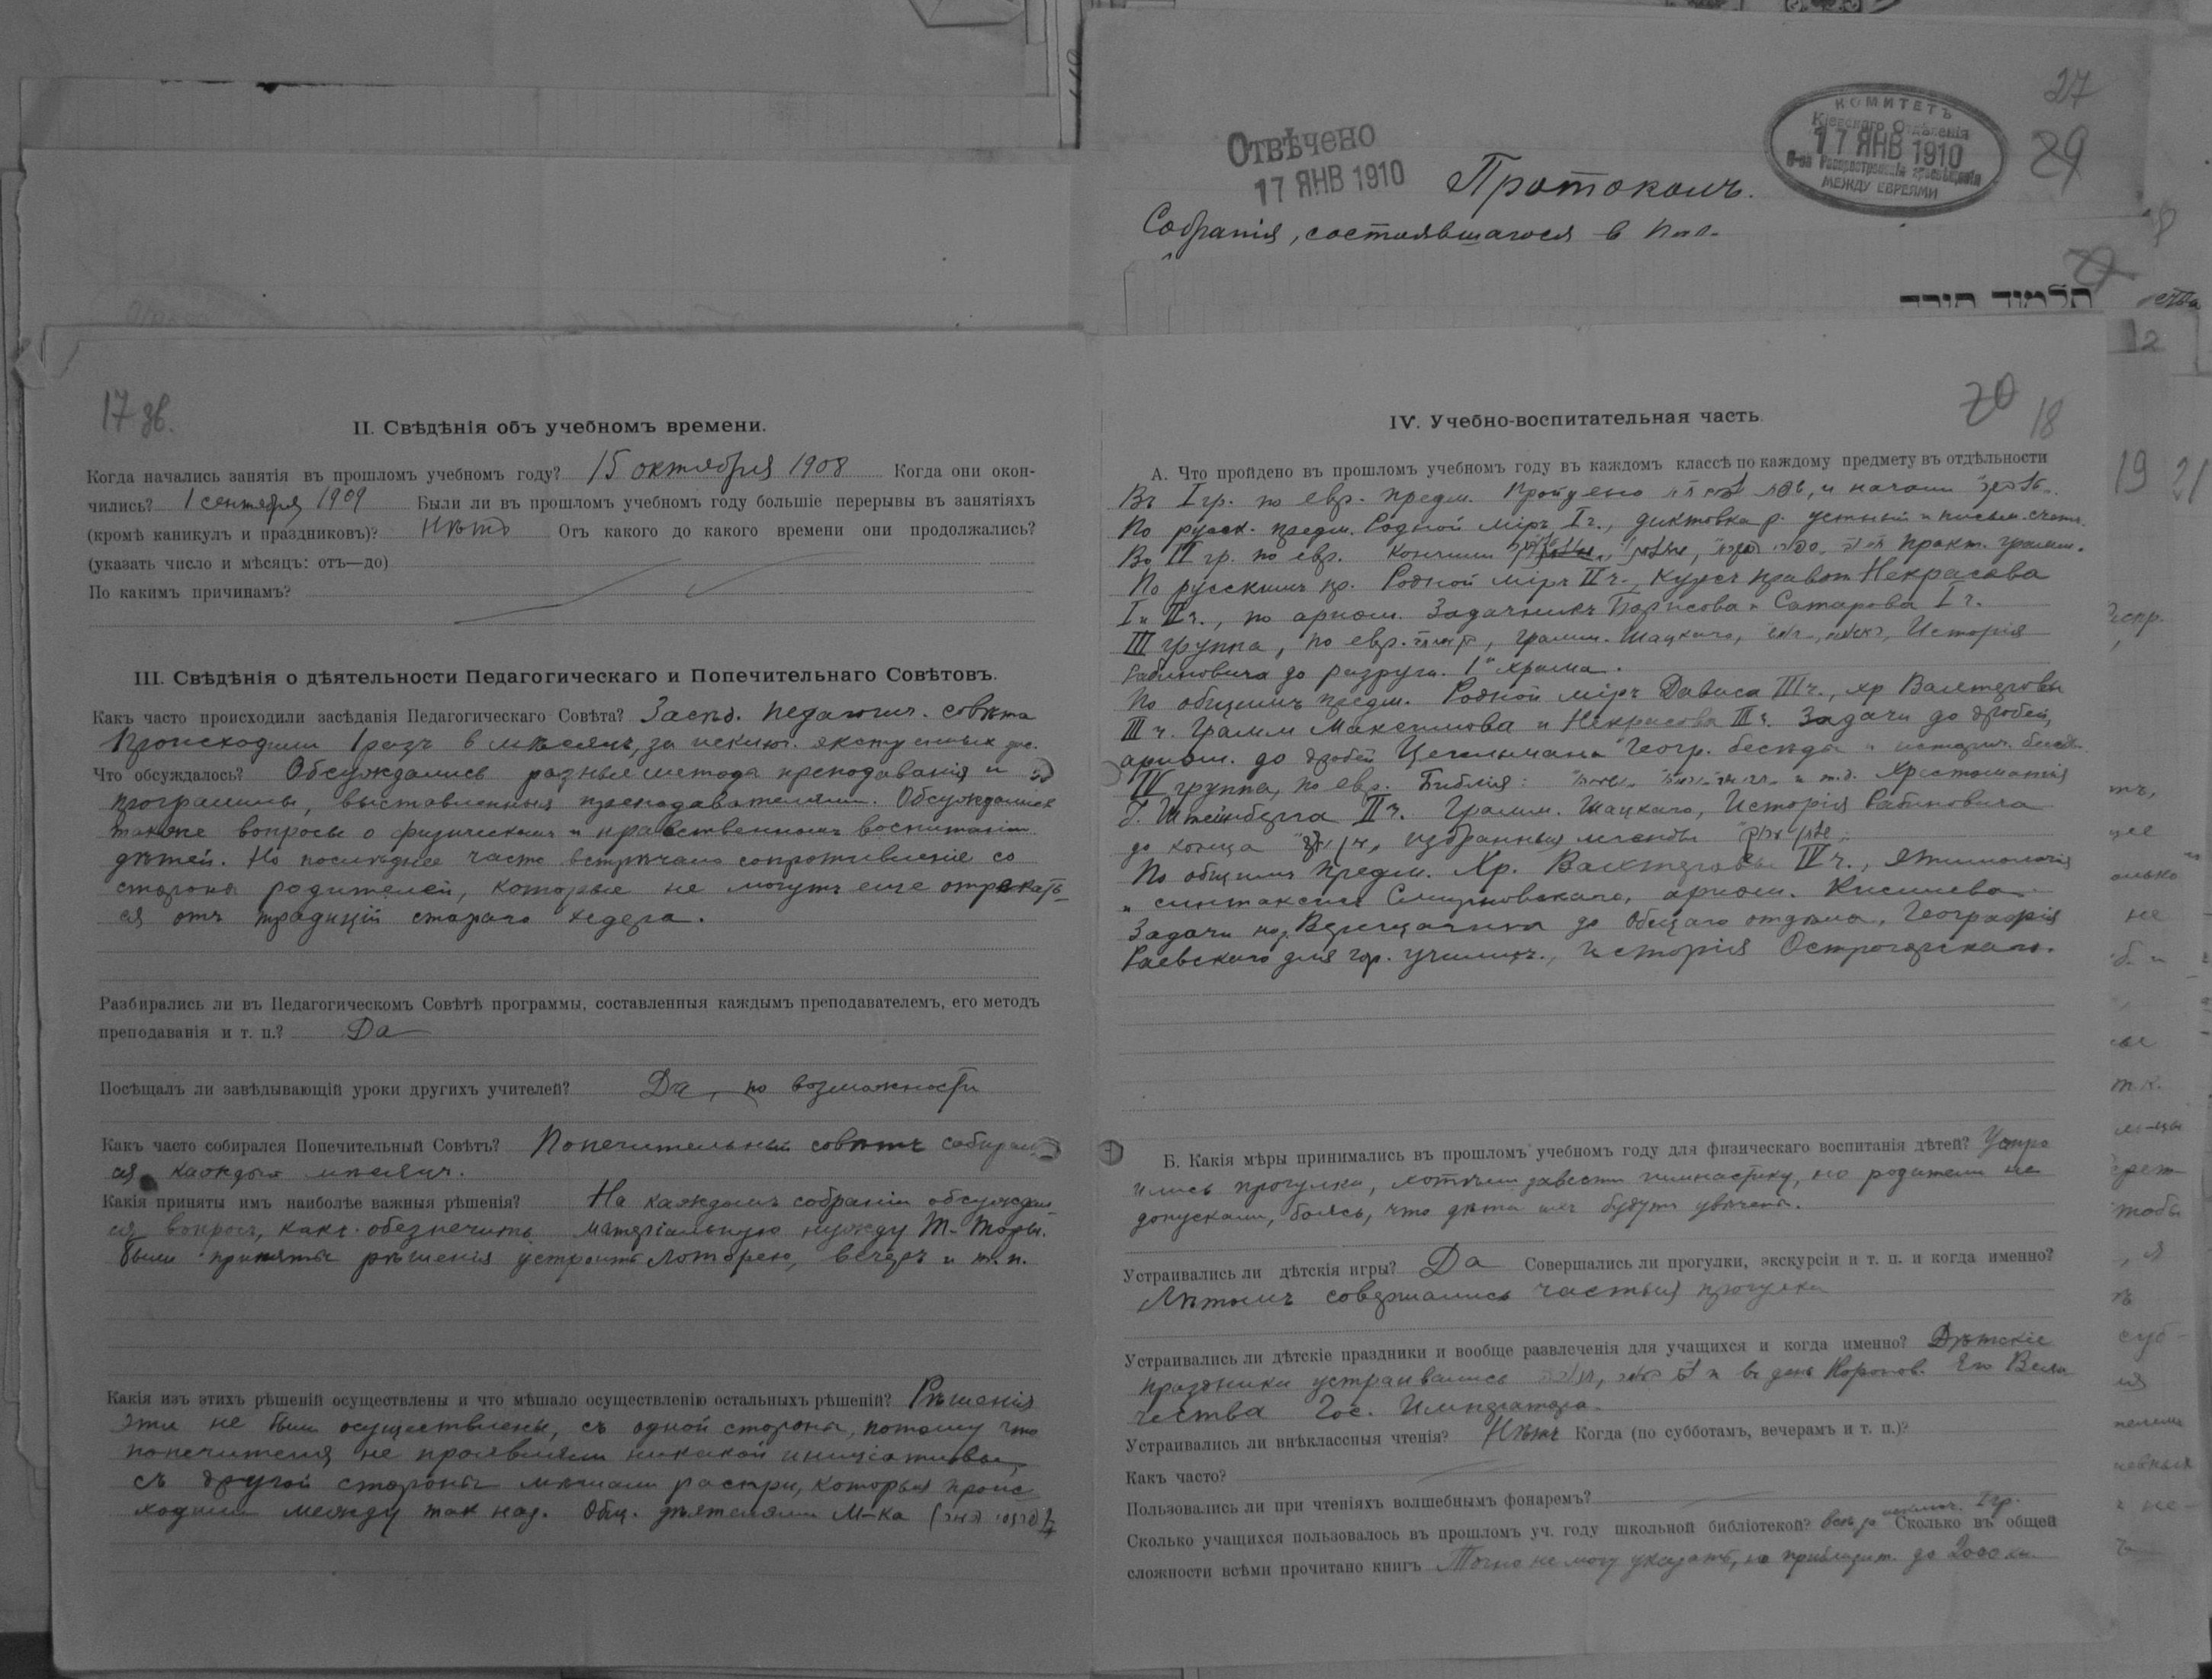 27
29
Отвѣчено
17 ЯНВ 1910
КОМИТЕТЪ
Кіевскаго Отдѣленія
17 ЯНВ 1910
О-ва Распространенія просвѣщенія
МЕЖДУ ЕВРЕЯМИ
Протоколъ.
Собранія, состоявшагося в
תלמוד תורה
17 зв.
II. Свѣдѣнія объ учебномъ времени.
Когда начались занятія въ прошломъ учебномъ году? 15 октября 1908 Когда они окон-
чились? 1 сентября 1909 Были ли въ прошломъ учебномъ году большіе перерывы въ занятіяхъ
(кромѣ каникулъ и праздниковъ)? Нѣтъ Отъ какого до какого времени они продолжались?
(указать число и мѣсяцъ: отъ—до)
По какимъ причинамъ?
III. Свѣдѣнія о дѣятельности Педагогическаго и Попечительнаго Совѣтовъ.
Какъ часто происходили засѣданія Педагогическаго Совѣта? Засѣд. педагогич. совѣта
происходили 1 разъ в мѣсяцъ, за исключ. экстренныхъ зас.
Что обсуждалось? Обсуждались разные метода преподаванія и
программы, выставленныя преподавателями. Обсуждались
также вопросы о физическомъ и нравственномъ воспитаніи
дѣтей. Но послѣднее часто встрѣчало сопротивленіе со
стороны родителей, которые не могутъ еще отрекать-
ся отъ традицій стараго хедера.
Разбирались ли въ Педагогическомъ Совѣтѣ программы, составленныя каждымъ преподавателемъ, его методъ
преподаванія и т. п.? Да
Посѣщалъ ли завѣдывающій уроки другихъ учителей? Да, по возможности
Какъ часто собирался Попечительный Совѣтъ? Попечительный совѣтъ собирал
ся каждый мѣсяцъ.
Какія приняты имъ наиболѣе важныя рѣшенія? На каждомъ собраніи обсуждал
ся вопросъ, какъ обезпечить матеріальную нужду Т-Торы.
Были приняты рѣшенія устроить лоторею, вечеръ и т. п.
Какія изъ этихъ рѣшеній осуществлены и что мѣшало осуществленію остальныхъ рѣшеній? Рѣшенія
эти не были осуществлены, съ одной стороны, потому что
попечителя не проявляли никакой иниціативы,
съ другой стороны мѣшали распри, которыя проис
ходили между так наз. общ. дѣятелями М-ка
20
18
IV. Учебно-воспитательная часть.
А. Что пройдено въ прошломъ учебномъ году въ каждомъ классѣ по каждому предмету въ отдѣльности
Въ I гр. по евр. предм. пройдено и начали
По русск. предм. Родной міръ I ч., диктовка р. устный и письм. счетъ.
Во II гр. по евр. кончили практ. грамм.
По русскимъ пр. Родной міръ II ч., курсъ правоп Некрасова
I и II ч., по ариѳм. Задачникъ Борисова и Сатарова I ч.
III группа, по евр. грамм. Шацкаго, Исторія
Рабиновича до разруш. 1го храма.
По общимъ предм. Родной міръ Даваса III ч., хр Вахтерова
III ч. Грамм Максимова и Некрасова III ч. Задачи до дробей,
ариѳм. до дробей Цегельмана Геогр. бесѣды и историч. бесѣд.
IV группа, по евр. Библія: и т.д. Христоматія
Г. Штейнберга II ч. Грамм. Шацкаго, Исторія Рабиновича
до конца избранныя
По общимъ предм. Хр. Вахтерова IV ч., этимологія
и синтаксисъ Смирновскаго, ариѳм. Киселева
Задачи по Верещагина до общаго отдѣла, Географія
Раевскаго для гор. училищ., исторія Острогорскаго.
Б. Какія мѣры принимались въ прошломъ учебномъ году для физическаго воспитанія дѣтей? Устра
ились прогулки, хотѣли завести гимнастику, но родители не
допускали, боясь, что дѣти ихъ будутъ увѣчены.
Устраивались ли дѣтскія игры? Да Совершались ли прогулки, экскурсіи и т. п. и когда именно?
Лѣтомъ совершались частыя прогулки
Устраивались ли дѣтскіе праздники и вообще развлеченія для учащихся и когда именно? Дѣтскіе
праздники устраивались и въ день Коронов. Его Вели
чества Гос. Императора.
Устраивались ли внѣклассныя чтенія? Нѣтъ Когда (по субботамъ, вечерамъ и т. п.)?
Какъ часто?
Пользовались ли при чтеніяхъ волшебнымъ фонаремъ?
Сколько учащихся пользовалось въ прошломъ уч. году школьной библіотекой? всѣ за исключ. I гр. Сколько въ общей
сложности всѣми прочитано книгъ Точно не могу указать, но приблизит. до 2000 кн.
12
19 21